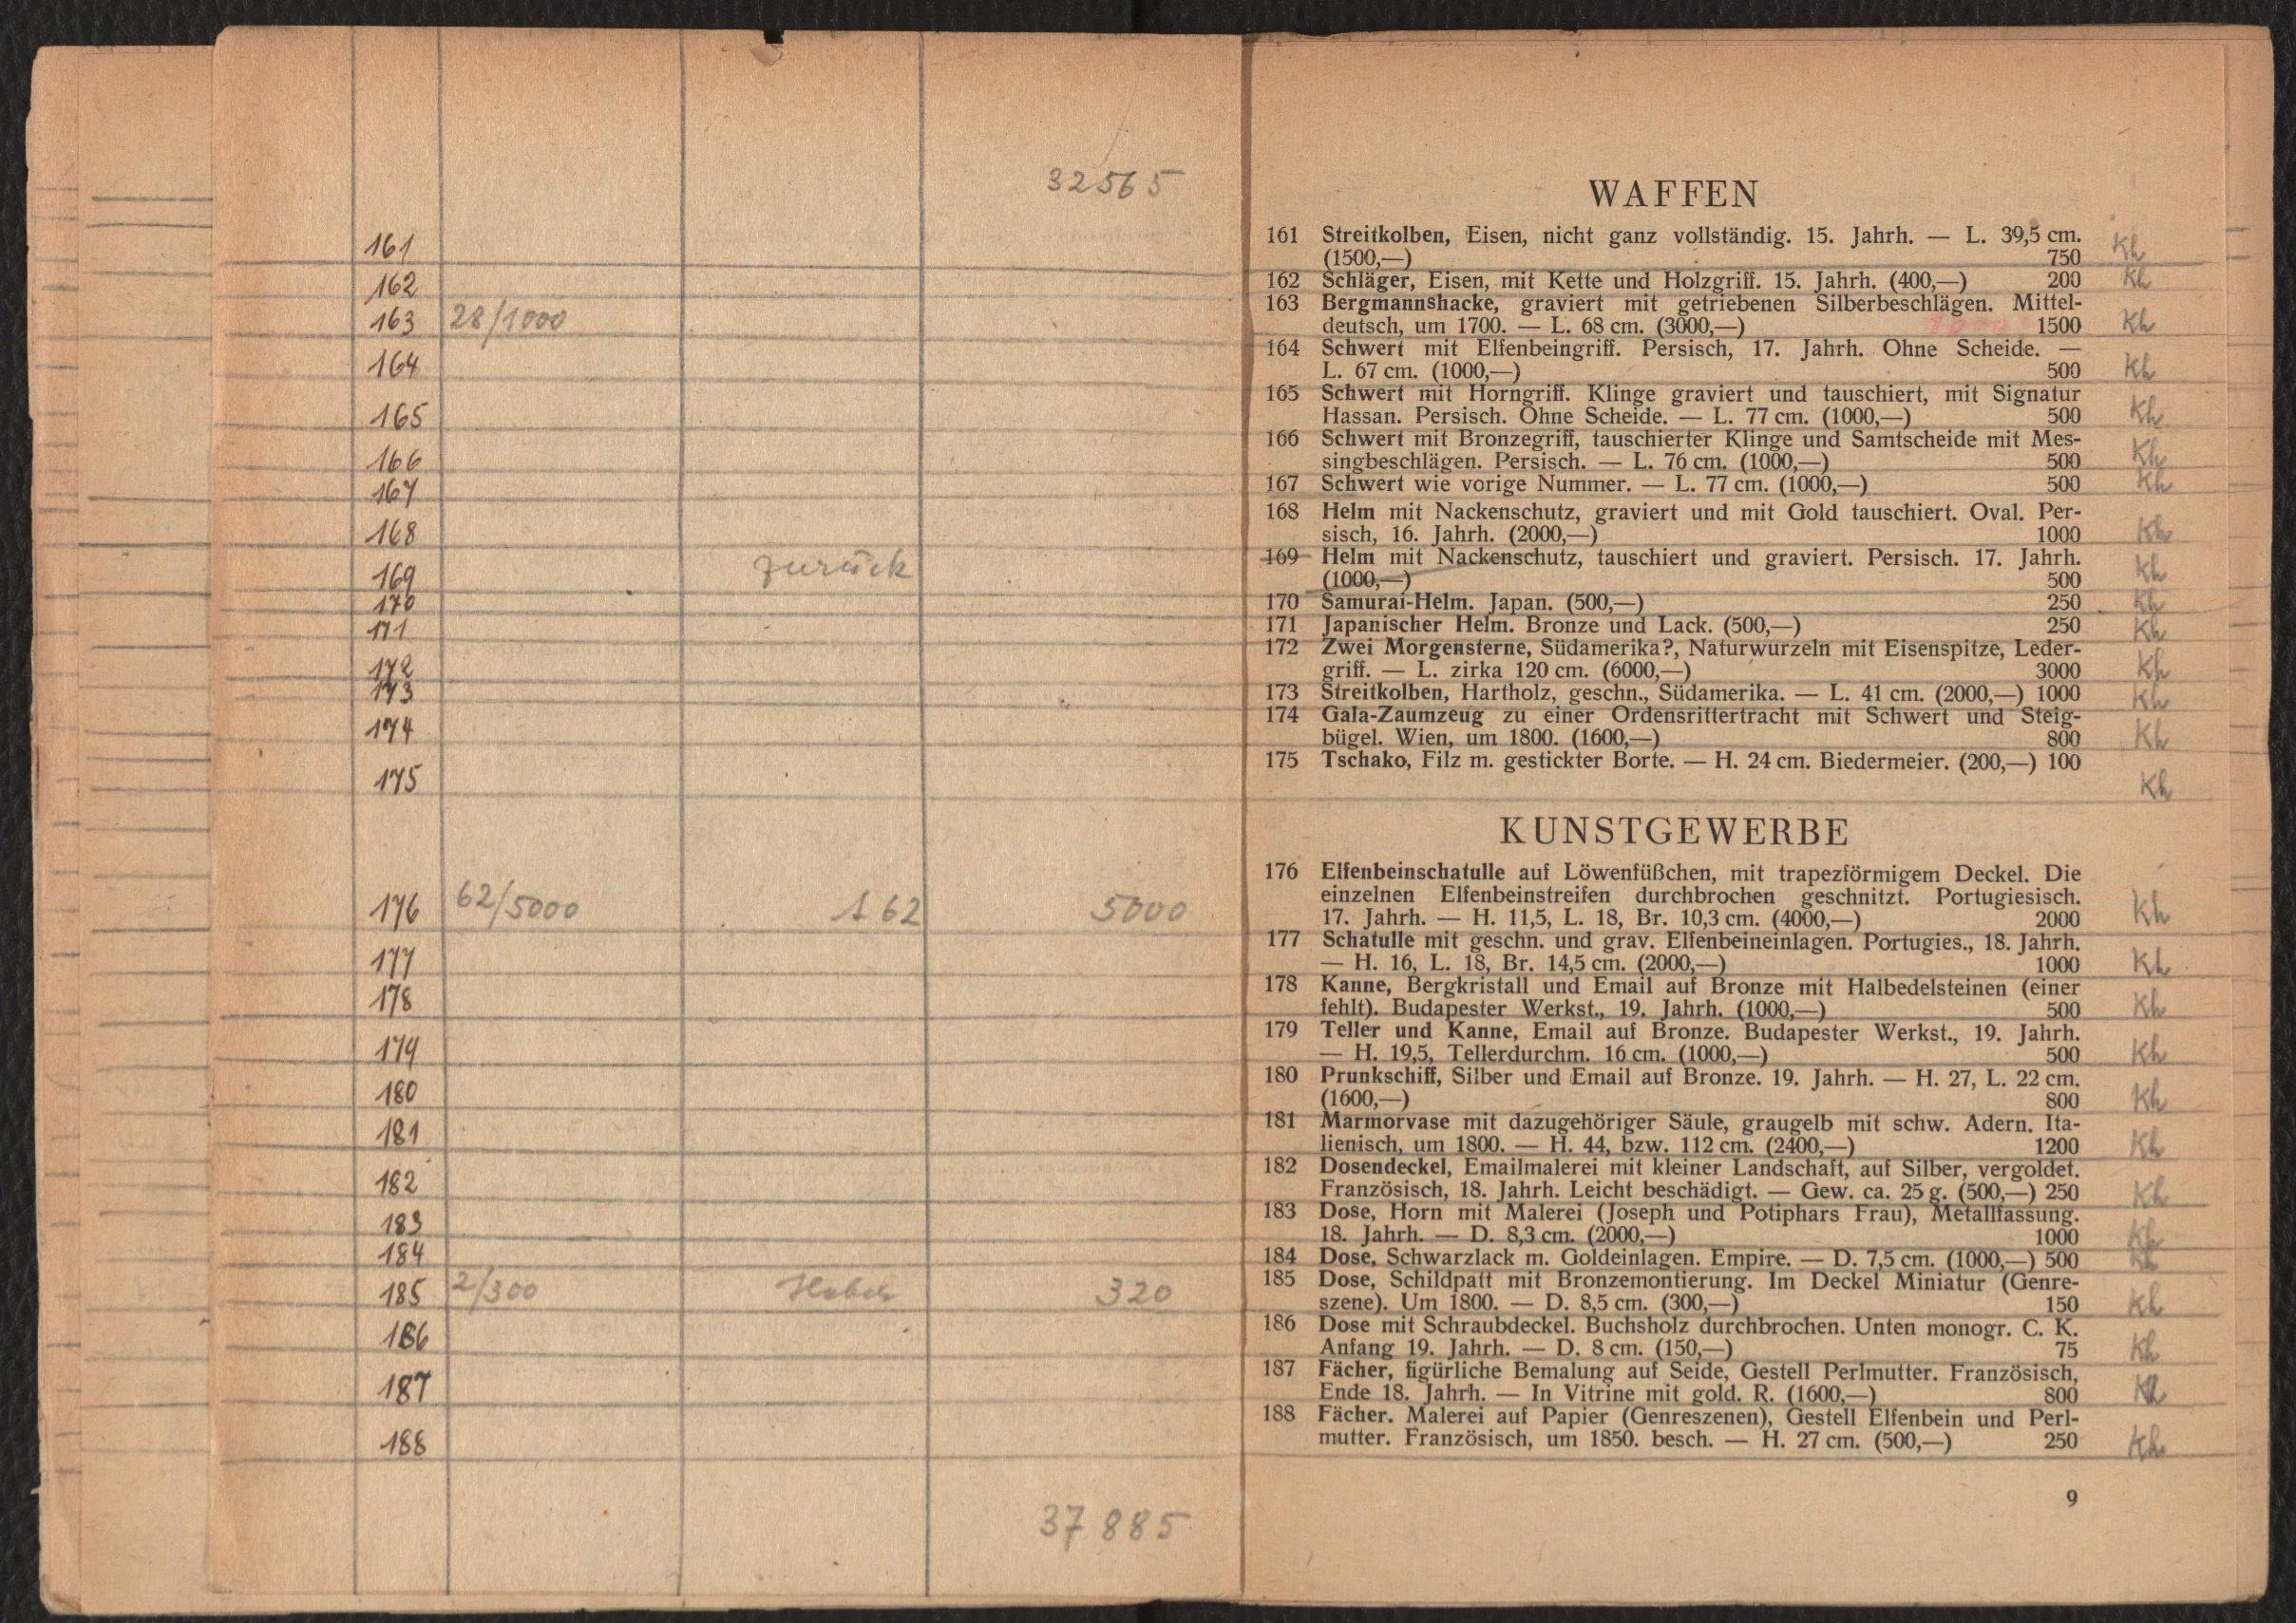 32565
161
162
163 28/1000
164
165
166
167
168
169 zurück
170
171
172
173
174
175
176 62/5000 62 5000
177
178
179
180
181
182
183
184
185 2/300 320
186
187
188
37885
WAFFEN
161 Streitkolben, Eisen, nicht ganz vollständig. 15. Jahrh. — L. 39,5 cm. Kh
(1500,—) 750
162 Schläger, Eisen, mit Kette und Holzgriff. 15. Jahrh. (400,—) 200 Kh
163 Bergmannshacke, graviert mit getriebenen Silberbeschlägen. Mittel-
deutsch, um 1700. — L. 68 cm. (3000,—) 1000 1500 Kh
164 Schwert mit Elfenbeingriff. Persisch, 17. Jahrh. Ohne Scheide. —
L. 67 cm. (1000,—) 500 Kh
165 Schwert mit Horngriff. Klinge graviert und tauschiert, mit Signatur
Hassan. Persisch. Ohne Scheide. — L. 77 cm. (1000,—) 500 Kh
166 Schwert mit Bronzegriff, tauschierter Klinge und Samtscheide mit Mes-
singbeschlägen. Persisch. — L. 76 cm. (1000,—) 500 Kh
167 Schwert wie vorige Nummer. — L. 77 cm. (1000,—) 500 Kh
168 Helm mit Nackenschutz, graviert und mit Gold tauschiert. Oval. Per-
sisch, 16. Jahrh. (2000,—) 1000 Kh
169 Helm mit Nackenschutz, tauschiert und graviert. Persisch. 17. Jahrh.
(1000,—) 500 Kh
170 Samurai-Helm. Japan. (500,—) 250 Kh
171 Japanischer Helm. Bronze und Lack. (500,—) 250 Kh
172 Zwei Morgensterne, Südamerika?, Naturwurzeln mit Eisenspitze, Leder-
griff. — L. zirka 120 cm. (6000,—) 3000 Kh
173 Streitkolben, Hartholz, geschn., Südamerika. — L. 41 cm. (2000,—) 1000 Kh
174 Gala-Zaumzeug zu einer Ordensrittertracht mit Schwert und Steig-
bügel. Wien, um 1800. (1600,—) 800 Kh
175 Tschako, Filz m. gestickter Borte. — H. 24 cm. Biedermeier. (200,—) 100
Kh
KUNSTGEWERBE
176 Elfenbeinschatulle auf Löwenfüßchen, mit trapezförmigem Deckel. Die
einzelnen Elfenbeinstreifen durchbrochen geschnitzt. Portugiesisch.
17. Jahrh. — H. 11,5, L. 18, Br. 10,3 cm. (4000,—) 2000 Kh
177 Schatulle mit geschn. und grav. Elfenbeineinlagen. Portugies., 18. Jahrh.
— H. 16, L. 18, Br. 14,5 cm. (2000,—) 1000 Kh
178 Kanne, Bergkristall und Email auf Bronze mit Halbedelsteinen (einer
fehlt). Budapester Werkst., 19. Jahrh. (1000,—) 500 Kh
179 Teller und Kanne, Email auf Bronze. Budapester Werkst., 19. Jahrh.
— H. 19,5, Tellerdurchm. 16 cm. (1000,—) 500 Kh
180 Prunkschiff, Silber und Email auf Bronze. 19. Jahrh. — H. 27, L. 22 cm.
(1600,—) 800 Kh
181 Marmorvase mit dazugehöriger Säule, graugelb mit schw. Adern. Ita-
lienisch, um 1800. — H. 44, bzw. 112 cm. (2400,—) 1200 Kh
182 Dosendeckel, Emailmalerei mit kleiner Landschaft, auf Silber, vergoldet.
Französisch, 18. Jahrh. Leicht beschädigt. — Gew. ca. 25 g. (500,—) 250 Kh
183 Dose, Horn mit Malerei (Joseph und Potiphars Frau), Metallfassung.
18. Jahrh. — D. 8,3 cm. (2000,—) 1000 Kh
184 Dose, Schwarzlack m. Goldeinlagen. Empire. — D. 7,5 cm. (1000,—) 500 Kh
185 Dose, Schildpatt mit Bronzemontierung. Im Deckel Miniatur (Genre-
szene). Um 1800. — D. 8,5 cm. (300,—) 150 Kh
186 Dose mit Schraubdeckel. Buchsholz durchbrochen. Unten monogr. C. K.
Anfang 19. Jahrh. — D. 8 cm. (150,—) 75 Kh
187 Fächer, figürliche Bemalung auf Seide, Gestell Perlmutter. Französisch,
Ende 18. Jahrh. — In Vitrine mit gold. R. (1600,—) 800 Kh
188 Fächer. Malerei auf Papier (Genreszenen), Gestell Elfenbein und Perl-
mutter. Französisch, um 1850. besch. — H. 27 cm. (500,—) 250 Kh
9